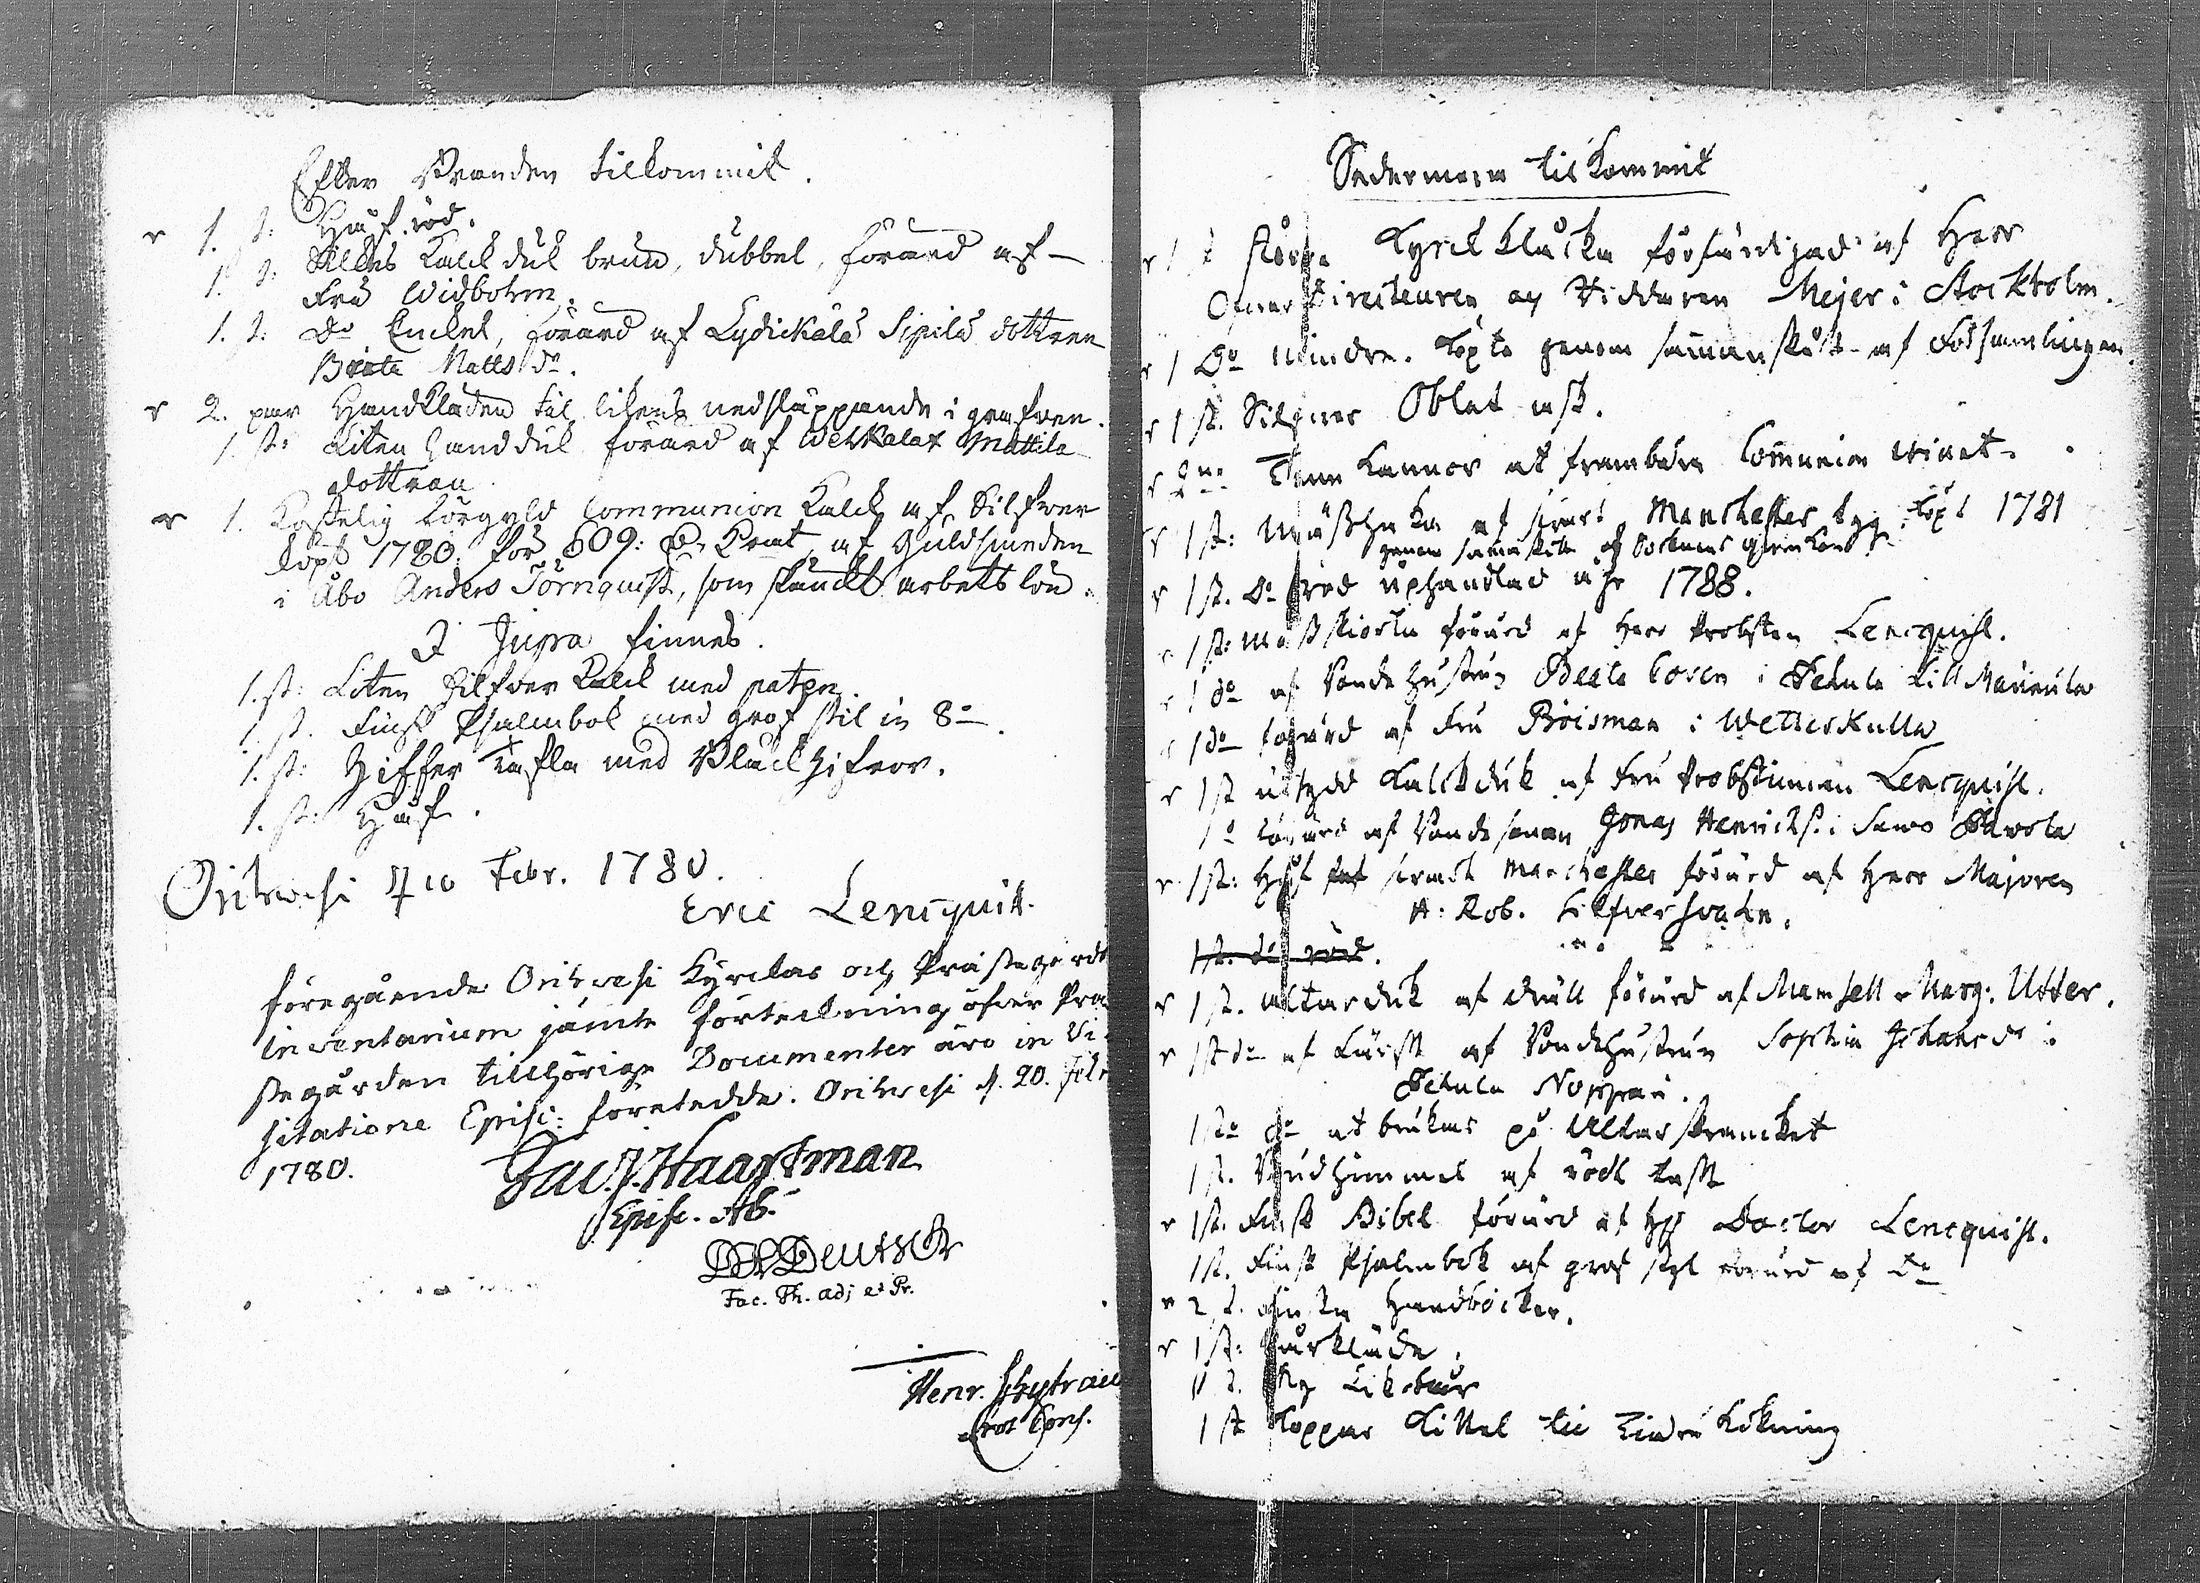 Efter Branden tilkommit.
r 1. st: Håf röd.
1. st: Silkes Kalck duk brun, dubbel, förärd af
Fru Widbohm.
1. st: Do Enckel, förärd af Lydickälä Sipilä dottren
Beata Matts dr.
r 2. par Handkläden til likens nedsläppande i grafven.
1. st: Liten handduk förärd af Wehkalax Mattila
dottren
r 1. Kostelig förgyld Communion Kalck af Silfver
köpt 1780. för 609: Pr Cont af Guldsmeden
i Åbo Anders Törnquist, som skänckt arbets lön.
I Juva finnes.
1. st: Liten Silfver Kalck med paten.
1 st. Finsk Psalmbok med grof stil in 8o
1. st: Ziffer Tafla med Bläck Zifror.
1. st: Håf.
Orihvesi d 10 Febr. 1780.
Eric Lencquist.
föregående Orihvesi Kyrckas och Prästegårds
Inventarium jämte förteckning öfver Prä
stegården tillhörige Documenter äro in Vi
sitatione Episc: företeddde. Orihvesi d. 20. Febr
1780.
Jac. J. Haartman
Episc. Ab.
Deutsch
Fac. Th. adj et Pr.
Henr.
Not Cons.
Sedermera tilkommit
r 1 st större Kyrck klåcka förfärdigad af Herr
Directeuren och Riddaren Mejer i Stockholm.
r 1 Do mindre. Köpte genom sammanskått af Församlingen.
r 1 st. Silfver Oblat ask.
r 2ne Tenn Kannor at frambära Communion winet.
r 1 st: Mässhaka af svart Manchester tyg, köpt 1781
genom sammanskått af Socknens
r 1 st. Do röd uphandlad åhr 1788.
r 1 st: Mässkiorta förärd af Herr Probsten Lencquist.
r 1 do af Bonde hustru Beata Corsen i Pehula Lill
r 1 do förärd af Fru Böisman i Wetteskulla
r 1 st utsydd Kalckduk af Fru Probstinnan Lencquist.
1 do förärd af Bondesonen Jonas Henricks. i Savo
r 1 st: Håf svart Manchester förärd af Herr Majoren
H: Rob. Silfversvahn.
1 st. do röd.
r 1 st. Altarduk af dräll förärd af Mamsell Marg: Utter.
r 1 st do af Lärft af Bondehustrun Sophia Johansdr i
Pehula Noppari.
1 st do at brukas på Altar skrancket
1 st. Brudhimmel af rödt taft
r 1 st. Finsk Bibel förärd af Hr Doctor Lencquist.
1 st. Finsk Psalmbok af grof styl förärd af do
r 2 st. Finska Handböcker.
r 1 st: Bårkläde.
1 st. Ny Likbår
1 st Koppar Kittel til